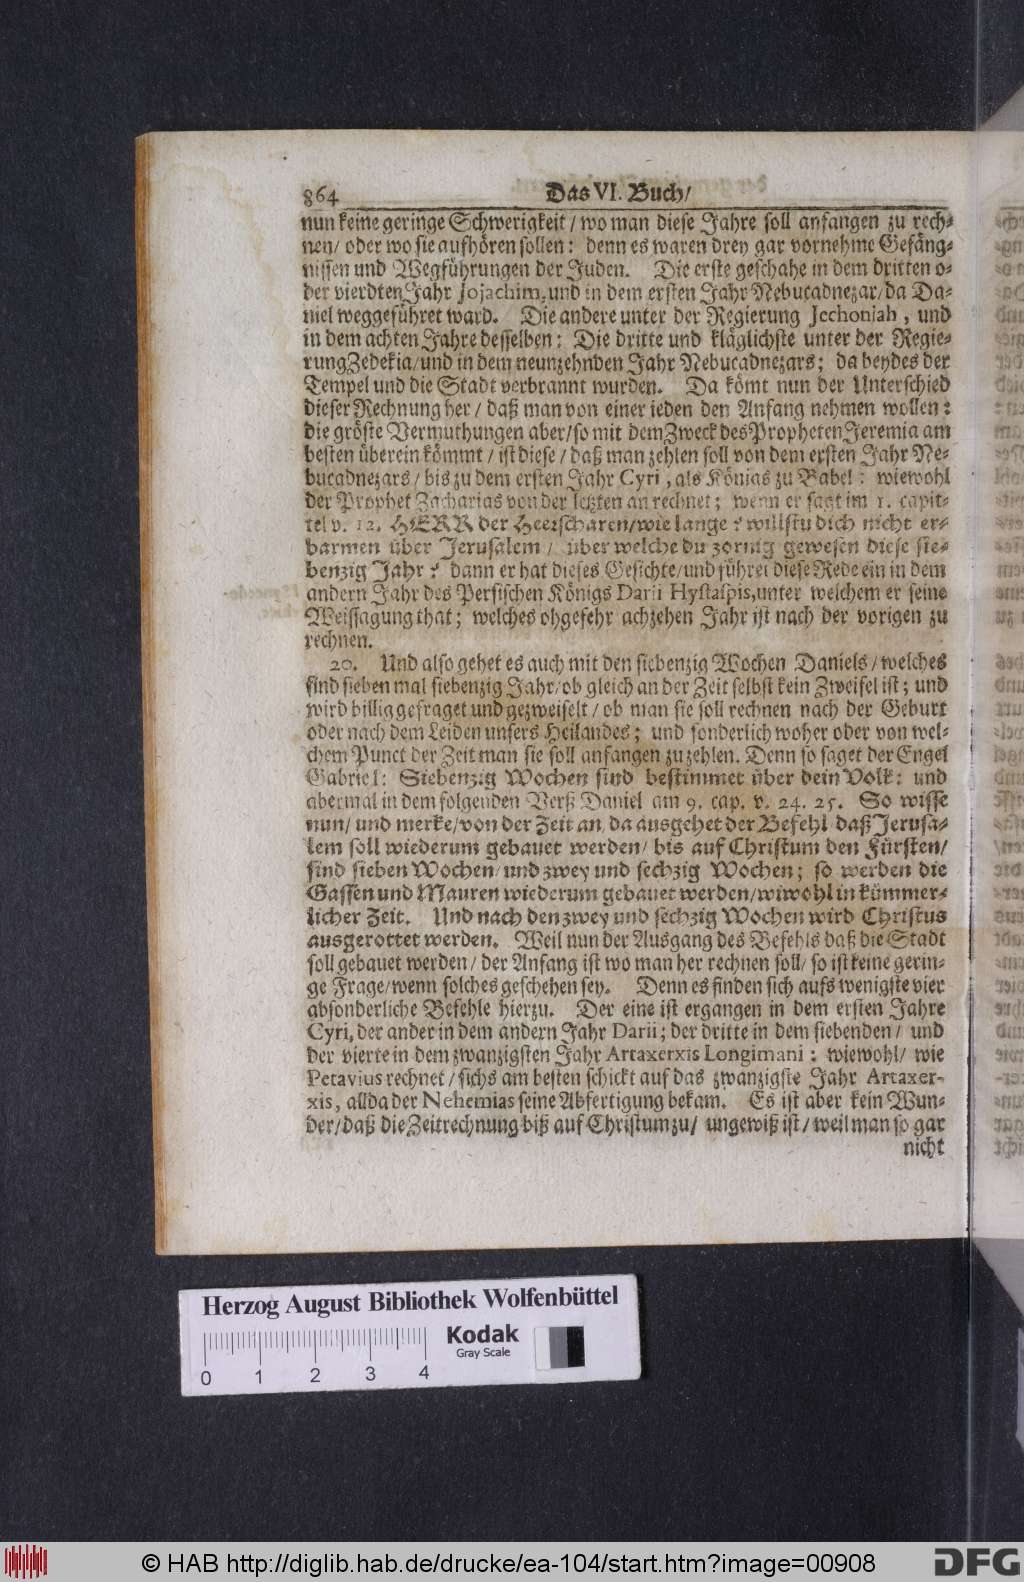 864 Das VI. Buch/
nun keine geringe Schwerigkeit / wo man diese Jahre soll anfangen zu rech-
nen/ oder wo sie aufhören sollen: denn es waren drey gar vornehme Gefäng-
nissen und Wegführungen der Juden. Die erste geschahe in dem dritten o-
der vierdten Jahr Jojachim, und in dem ersten Jahr Nebucadnezar/ da Da-
niel weggeführet ward. Die andere unter der Regierung Jechoniah, und
in dem achten Jahre desselben: Die dritte und kläglichste unter der Regie-
rung Zedekia/ und in dem neunzehnden Jahr Nebucadnezars; da beydes der
Tempel und die Stadt verbrannt wurden. Da kömt nun der Unterschied
dieser Rechnung her / daß man von einer ieden den Anfang nehmen wollen:
die gröste Vermuthungen aber/ so mit dem Zweck des Propheten Jeremia am
besten überein kömmt / ist diese / daß man zehlen soll von dem ersten Jahr Ne-
bucadnezars / bis zu dem ersten Jahr Cyri, als Königs zu Babel: wiewohl
der Prophet Zacharias von der letzten an rechnet; wenn er sagt im 1. capit-
tel v. 12. HERR der Heerscharen/ wie lange? willstu dich nicht er-
barmen über Jerusalem / über welche du zornig gewesen diese sie-
benzig Jahr? dann er hat dieses Gesichte/ und führet diese Rede ein in dem
andern Jahr des Persischen Königs Darii Hystaspis, unter welchem er seine
Weissagung that; welches ohgefehr achzehen Jahr ist nach der vorigen zu
rechnen.
20. Und also gehet es auch mit den siebenzig Wochen Daniels / welches
sind sieben mal siebenzig Jahr/ ob gleich an der Zeit selbst kein Zweifel ist; und
wird billig gefraget und gezweiselt / ob man sie soll rechnen nach der Geburt
oder nach dem Leiden unsers Heilandes; und sonderlich woher oder von wel-
chem Punct der Zeit man sie soll anfangen zu zehlen. Denn so saget der Engel
Gabriel: Siebenzig Wochen sind bestimmet über dein Volk: und
abermal in dem folgenden Verß Daniel am 9. cap. v. 24. 25. So wisse
nun/ und merke/ von der Zeit an, da ausgehet der Befehl daß Jerusa-
lem soll wiederum gebauet werden/ bis auf Christum den Fürsten/
sind sieben Wochen/ und zwey und sechzig Wochen; so werden die
Gassen und Mauren wiederum gebauet werden/ wiwohl in kümmer-
licher Zeit. Und nach den zwey und sechzig Wochen wird Christus
ausgerottet werden. Weil nun der Ausgang des Befehls daß die Stadt
soll gebauet werden / der Anfang ist wo man her rechnen soll/ so ist keine gerin-
ge Frage/ wenn solches geschehen sey. Denn es finden sich aufs wenigste vier
absonderliche Befehle hierzu. Der eine ist ergangen in dem ersten Jahre
Cyri, der ander in dem andern Jahr Darii; der dritte in dem siebenden / und
der vierte in dem zwanzigsten Jahr Artaxerxis Longimani: wiewohl/ wie
Petavius rechnet / sichs am besten schickt auf das zwanzigste Jahr Artaxer-
xis, allda der Nehemias seine Abfertigung bekam. Es ist aber kein Wun-
der/ daß die Zeitrechnung biß auf Christum zu/ ungewiß ist/ weil man so gar
nicht
Herzog August Bibliothek Wolfenbüttel
Kodak
Gray Scale
0 1 2 3 4
© HAB http://diglib.hab.de/drucke/ea-104/start.htm?image=00908
DFG